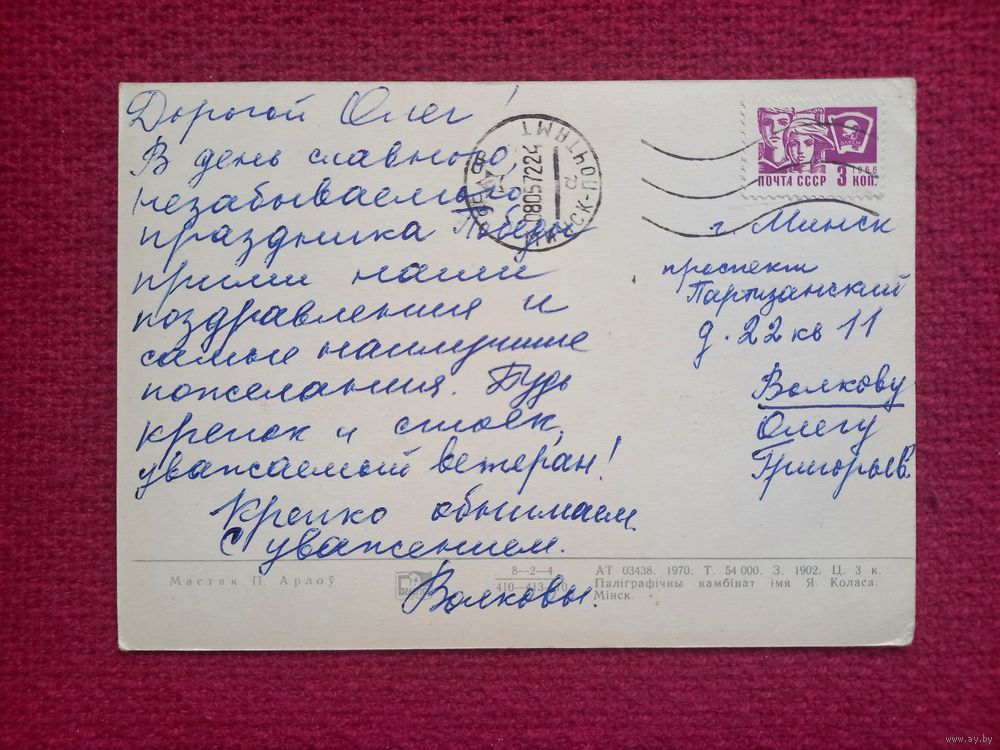 Дорогой Олег!
В день славного,
незабываемого
праздника Победы
прими наши
поздравления и
самые наилучшие
пожелания. Будь
крепок и стоек,
уважаемый ветеран!
Крепко обнимаем
С уважением.
Волковы.
МИНСК-ПОЧТАМТ
08057224
1966
ПОЧТА СССР 3 КОП.
г. Минск
проспект
Партизанский
д. 22 кв 11
Волкову
Олегу
Григорьев.
Мастак П. Арлоў
8—2—4
АТ 03438. 1970. Т. 54 000. З. 1902. Ц. 3 к.
Паліграфічны камбінат імя Я. Коласа.
Мінск.
www.ay.by